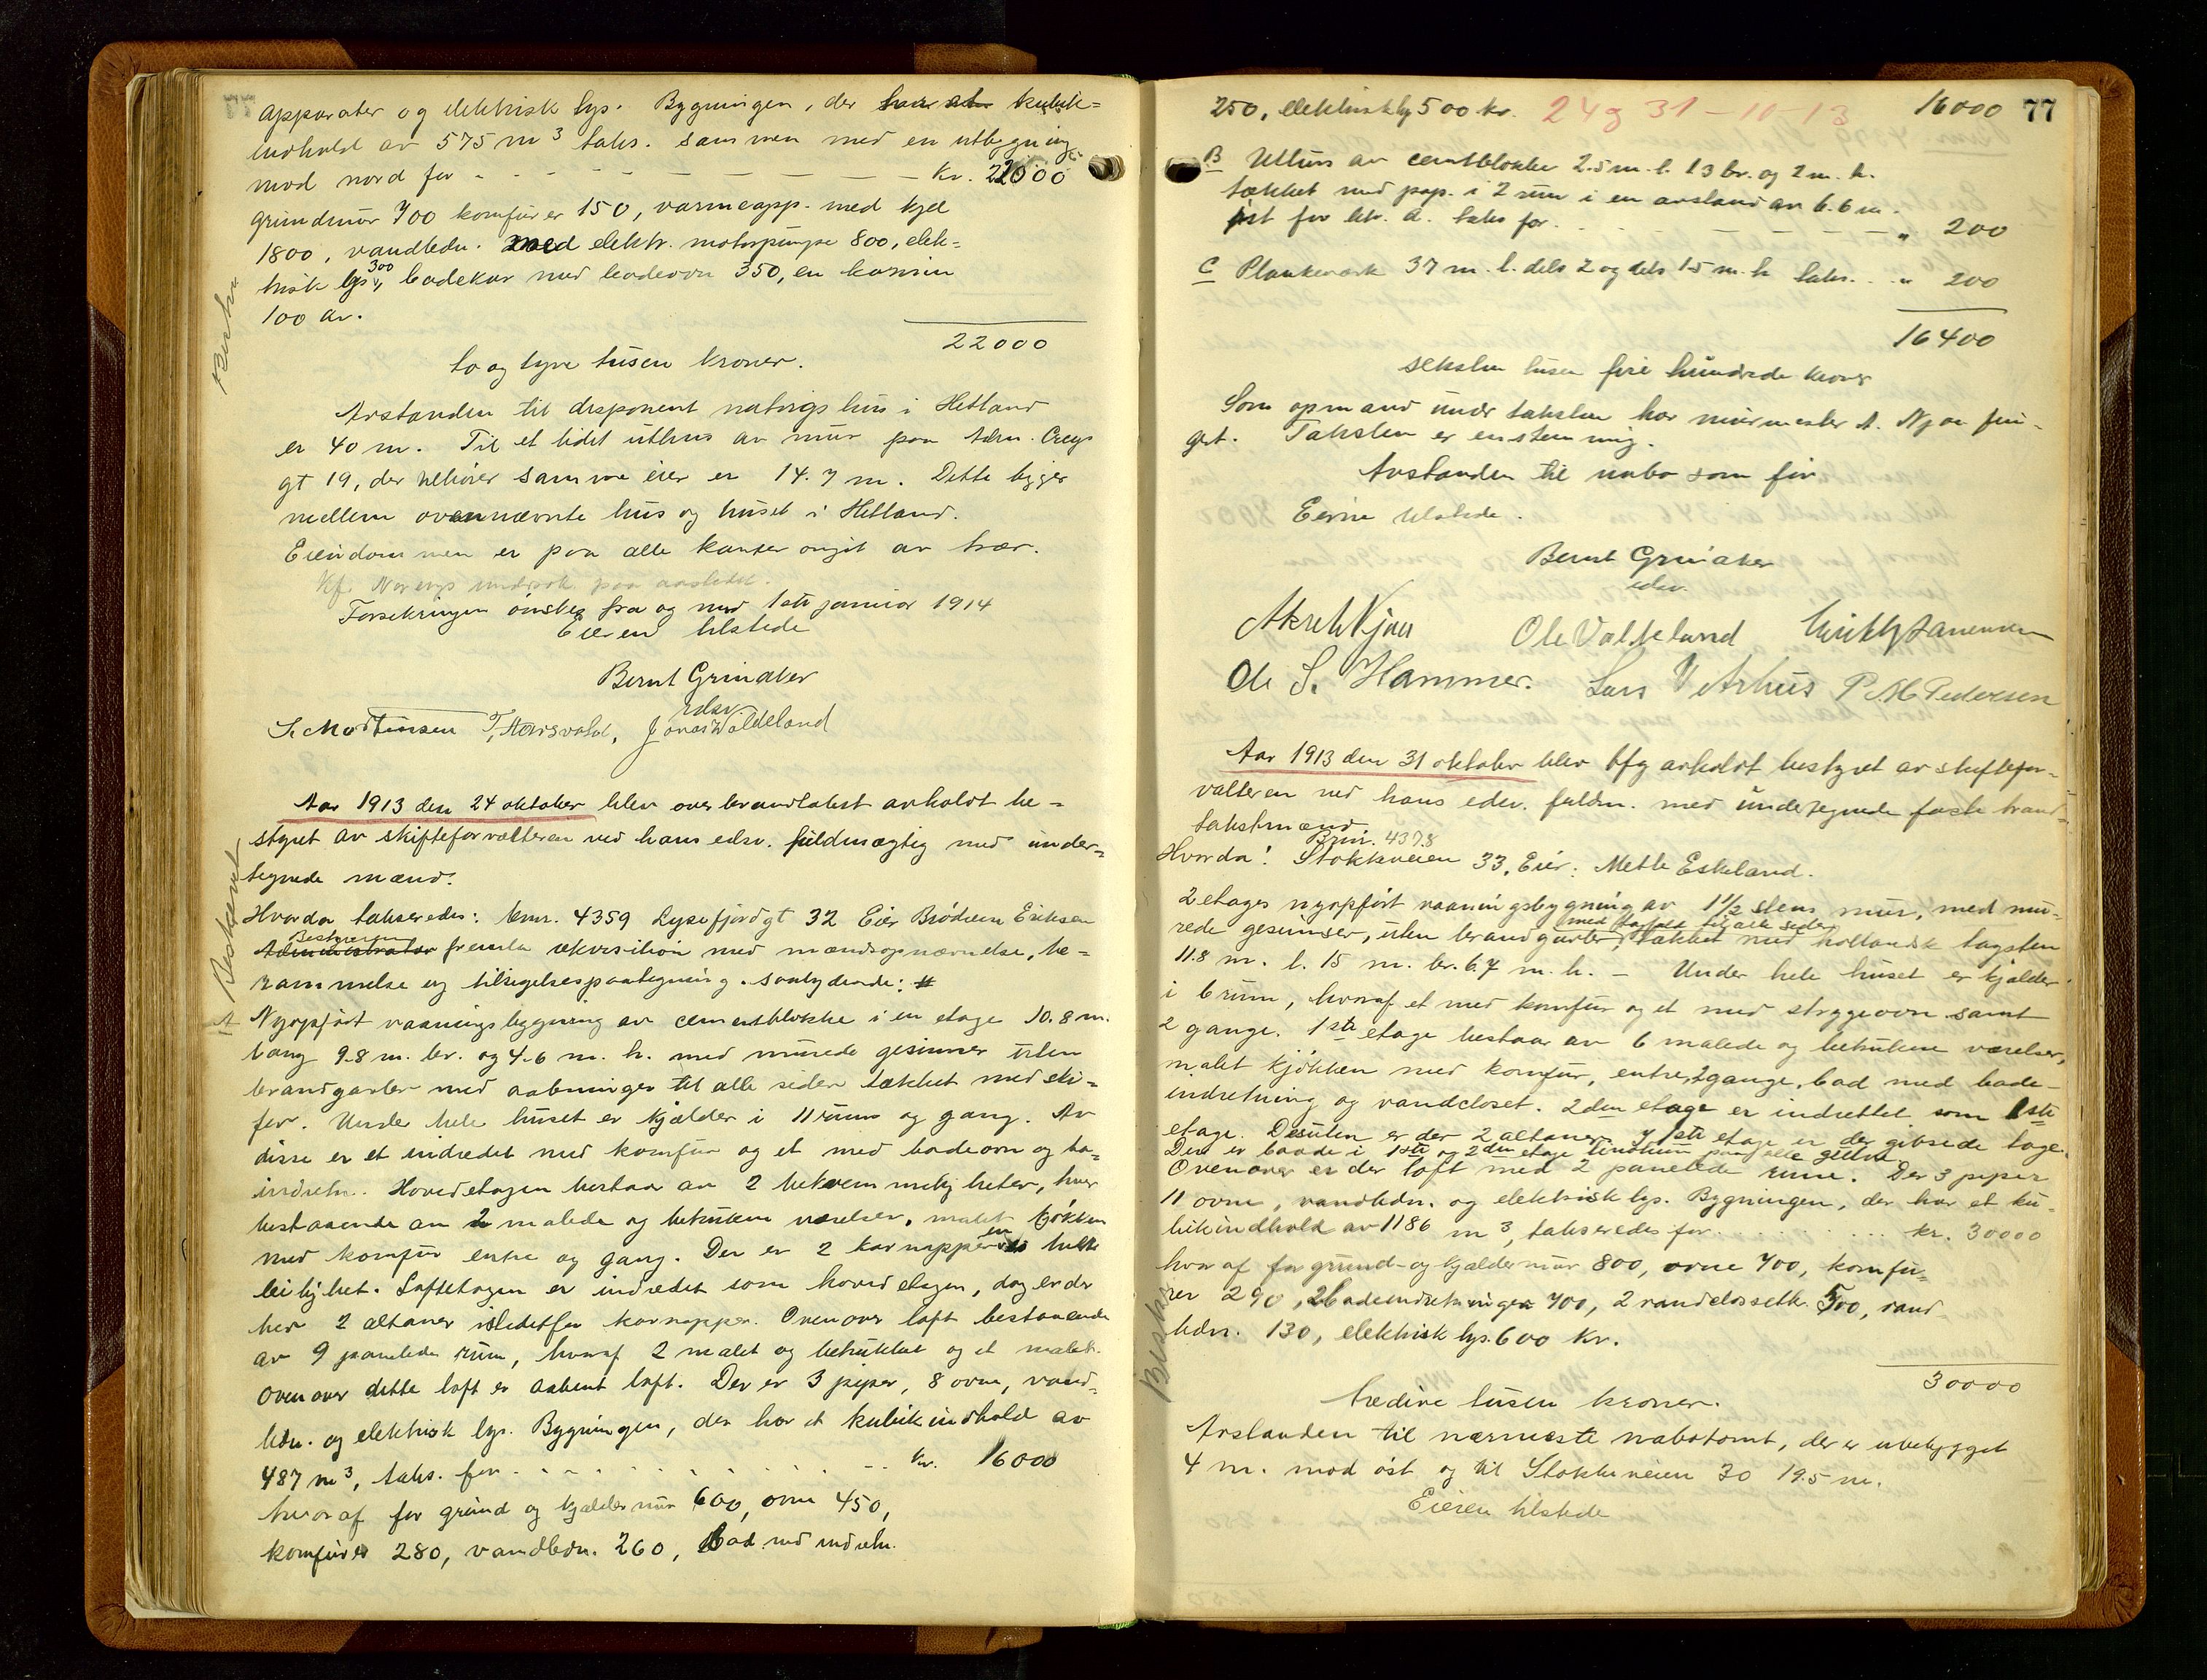 apparater og elektrisk lys. Bygningen, der har et kubik=
indhold av 575 m³ taks. sammen med en utbygning
mod nord for - - - - - - - - - Kr. 22000
grundmur 700 komfurer 150, varmeapp. med kjel
1800, vandledn. med elektr. motorpumpe 800, elek=
trisk lys 300, badekar med badeovn 350, en kamin
100 kr.
22000
to og tyve tusen kroner.
Avstanden til disponent hus i Hetland
er 40 m. Til et litet uthus av mur paa Adm. Cruys
gt 19, der tilhører samme eier er 14.7 m. Dette ligger
mellem ovennævnte hus og huset i Hetland.
Eiendommen er paa alle kanter omgit av trær.
paa aastedet.
Forsikringen ønskes fra og med 1ste januar 1914
Eieren tilstede
Bernt Grindaker
edsv.
S. Mortensen T. Jonas Waldeland
Aar 1913 den 24 oktober blev overbrandtakst avholdt be=
styret av skifteforvalteren ved hans edsv. fuldmægtig med under=
tegnede mænd.
Hvorda takseredes: bmr. 4359 Lysefjordgt 32 Eier Brødrene Eriksen
Bestyreren
Administrator fremla rekvisition med mandsopnævnelse, be=
rammelse og tilsigelsespaategning. saalydende: #
A Nyopført vaaningsbygning av cementblokke i en etage 10.8 m.
lang 9.8 m. br. og 4.6 m. h. med murede gesimser uten
brandgavler med aabninger til alle sider tækket med ski=
fer. Under hele huset er kjælder i 11 rum og gang. Av
disse er et indredet med komfur og et med badeovn og ba=
indretn. Hovedetagen bestaar av 2 bekvemmeligheter, hver
bestaaende av 2 malede og betrukne værelser, malet kjøkken
med komfur entre og gang. Der er 2 karnapper en til hver
leilighet. Loftetagen er indredet som hovedetagen, dog er der
her 2 altaner istedetfor karnapper. Ovenover loft bestaaende
av 9 panelede rum, hvoraf 2 malet og betrukket og et malet.
Ovenover dette loft er aabent loft. Der er 3 piper, 8 ovne, vand=
ledn. og elektrisk lys. Bygningen, der har et kubikindhold av
487 m³, taks. for - - - - - - - - - - Kr. 16000
hvoraf for grund og kjældermur 600, ovne 450,
komfurer 280, vandledn. 260, bad med indretn.
Beskrevet
77
250, elektrisk lys 500 kr. 24 g 31 - 10 - 13 16000
B Uthus av cemtblokke 2.5 m. l. 1.3 br. og 2 m. h.
tækket med pap. i 2 rum i en avstand av 6.6 m.
øst for litr. A. taks for. - - - - - - " 200
C Plankeværk 37 m. l. dels 2 og dels 1.5 m. h. taks. . . " 200
16400
seksten tusen fire hundrede kroner
Som opmand under taksten har murmester A. Njaa fun-
gert. Taksten er enstemmig.
Avstanden til nabo som før
Eierne tilstede.
Bernt Grindaker
edsv.
Aksel Njaa Ole Valheland
Ole S. Hammer. Lars V Århus P. M. Pedersen
Aar 1913 den 31 oktober blev bfg avholdt bestyret av skiftefor=
valteren ved hans edsv. fuldm. med undertegnede faste brand=
takstmænd
Bmr. 4378
Hvorda: Stokkaveien 33. Eier: Mette Eskeland.
2 etages nyopført vaaningsbygning av 1 1/2 stens mur, med mu=
med forfald til alle sider
rede gesimser, uten brandgavler, tækket med hollandsk tagsten
11.8 m. l. 15 m. br. 6.7 m. h. - Under hele huset er kjælder
i 6 rum, hvoraf et med komfur og et med strygeovn samt
2 gange. 1ste etage bestaar av 6 malede og betrukne værelser,
malet kjøkken med komfur, entre, 2 gange, bad med bade-
indretning og vandcloset. 2den etage er indrettet som 1ste
etage. Desuten er der 2 altaner. I 1ste etage er der gibsede tage.
Der er baade i 1ste og 2den etage linoleum paa alle gulve
Ovenover er der loft med 2 panelede rum. Der 3 piper
11 ovne, vandledn. og elektrisk lys. Bygningen, der har et ku=
bikindhold av 1186 m³, takseredes for. . . . . . . . . kr. 30000
hvoraf for grund- og kjældermur 800, ovne 700, komfu=
rer 290, 2 badeindretninger 700, 2 vandclosetter 500, vand-
ledn. 130, elektrisk lys. 600 kr.
30000
tredive tusen kroner.
Avstanden til nærmeste nabotomt, der er ubebygget
4 m. mod øst og til Stokkaveien 30 19.5 m.
Eieren tilstede